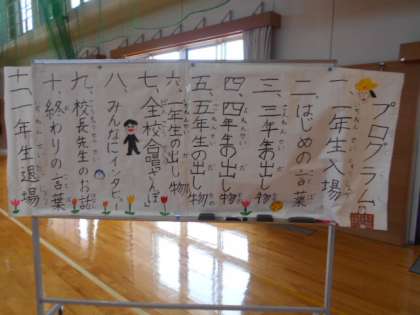 プログラム
一、一年生入場
二、はじめの言葉
三、三年生の出し物
四、四年生の出し物
五、五年生の出し物
六、一年生の出し物
七、全校合唱さんぽ
八、みんなにインタビュー
九、校長先生のお話
十、終わりの言葉
十一、一年生退場